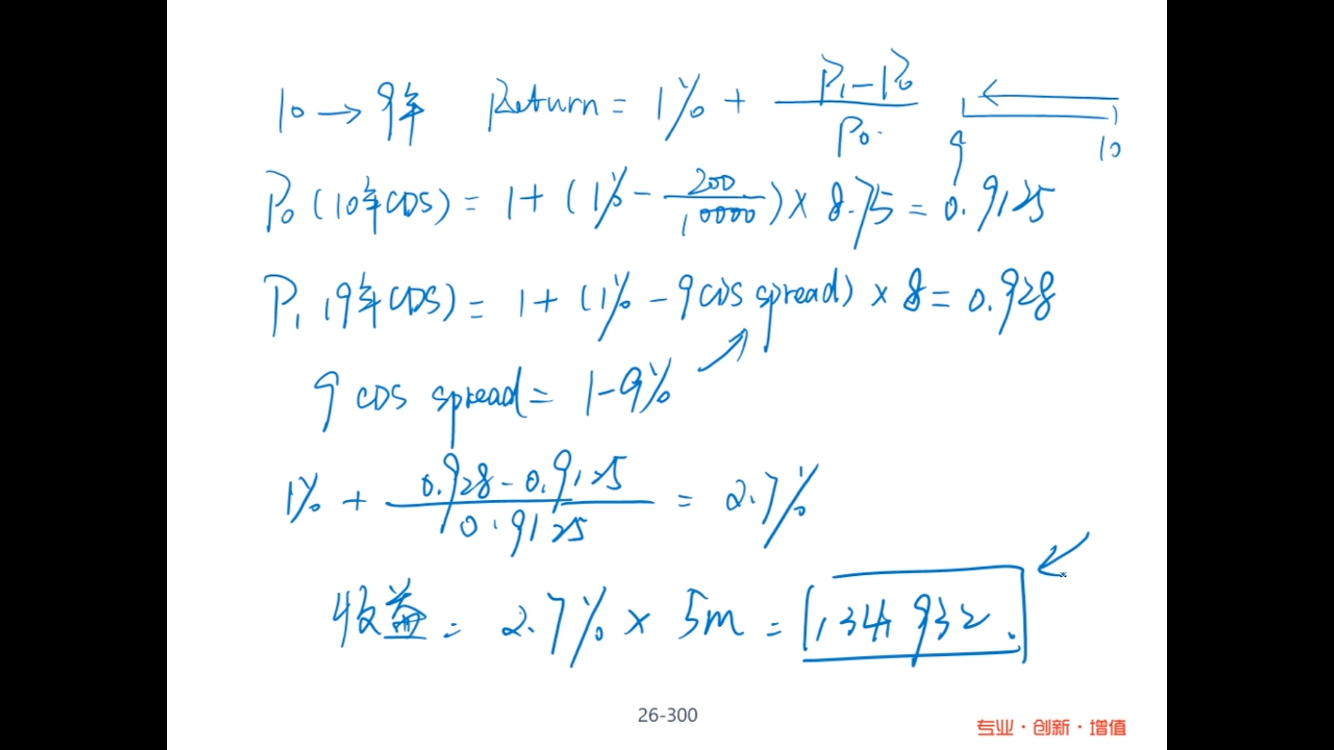 10 → 9年 Return = 1% + (P₁-P₀)/P₀. 9 10
P₀ (10年CDS) = 1 + (1% - 200/10000) × 8.75 = 0.9125
P₁ (9年CDS) = 1 + (1% - 9 CDS spread) × 8 = 0.928
9 CDS spread = 1-9%
1% + (0.928-0.9125)/0.9125 = 2.7%
收益 = 2.7% × 5m = 134,932.
26-300
专业·创新·增值